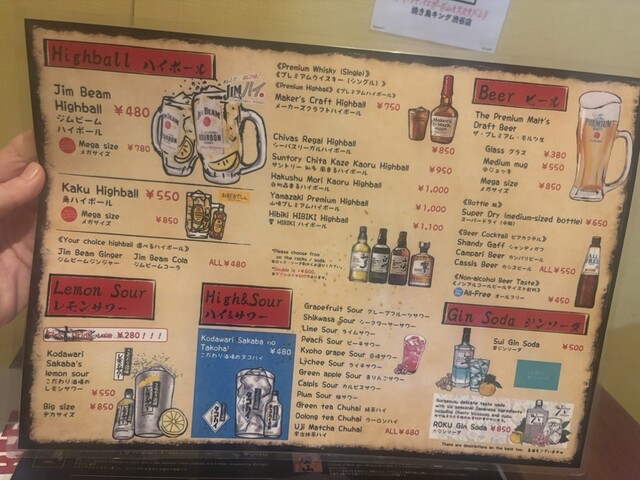 焼き鳥キング 渋谷店
Highball ハイボール
Jim Beam
Highball ¥480
ジムビーム
ハイボール
Mega size
メガサイズ ¥780
Kaku Highball ¥550
角ハイボール
Mega size
メガサイズ ¥850
《Your choice highball 選べるハイボール》
Jim Beam Ginger
ジムビームジンジャー
Jim Beam Cola
ジムビームコーラ
ALL¥480
《Premium Whisky (Single)》
《プレミアムウイスキー (シングル) 》
《Premium Highball》《プレミアムハイボール》
Maker's Craft Highball ¥750
メーカーズクラフトハイボール
Chivas Regal Highball ¥850
シーバスリーガルハイボール
Suntory Chita Kaze Kaoru Highball ¥950
サントリー 知多 風香るハイボール
Hakushu Mori Kaoru Highball ¥1,000
白州森香るハイボール
Yamazaki Premium Highball ¥1,000
山崎プレミアムハイボール
Hibiki HIBIKI Highball ¥1,100
響 HIBIKI ハイボール
*Please choose from
on the rocks / soda.
Beer ビール
The Premium Malt's
Draft Beer
ザ・プレミアム・モルツ生
Glass グラス ¥380
Medium mug ¥550
中ジョッキ
Mega size ¥850
メガサイズ
《Bottle 瓶》
Super Dry (medium-sized bottle) ¥650
スーパードライ (中瓶)
《Beer Cocktail ビアカクテル》
Shandy Gaff シャンディガフ
Campari Beer カンパリビール
Cassis Beer カシスビール ALL¥550
《Non-alcohol Beer Taste》
《ノンアルコールビールテイスト飲料》
All-Free オールフリー ¥450
Lemon Sour
レモンサワー
¥280!!!
Kodawari
Sakaba's
lemon sour
こだわり酒場の
レモンサワー ¥550
Big size
デカサイズ ¥850
High&Sour
ハイ&サワー
Kodawari Sakaba no
Takohai
こだわり酒場のタコハイ ¥480
Grapefruit Sour グレープフルーツサワー
Shikwasa Sour シークワーサーサワー
Lime Sour ライムサワー
Peach Sour ピーチサワー
Kyoho grape Sour 巨峰サワー
Lichee Sour ライチサワー
Green apple Sour 青りんごサワー
Calpis Sour カルピスサワー
Plum Sour 梅サワー
Green tea Chuhai 緑茶ハイ
Oolong tea Chuhai ウーロンハイ
Uji Matcha Chuhai
宇治抹茶ハイ ALL¥480
Gin Soda ジンソーダ
Sui Gin Soda ¥500
翠ジンソーダ
Gorgeous, delicate taste gin
with six seasonal Japanese ingredients
including cherry blossoms and yuzu.
ROKU Gin Soda ¥850
六ジンソーダ